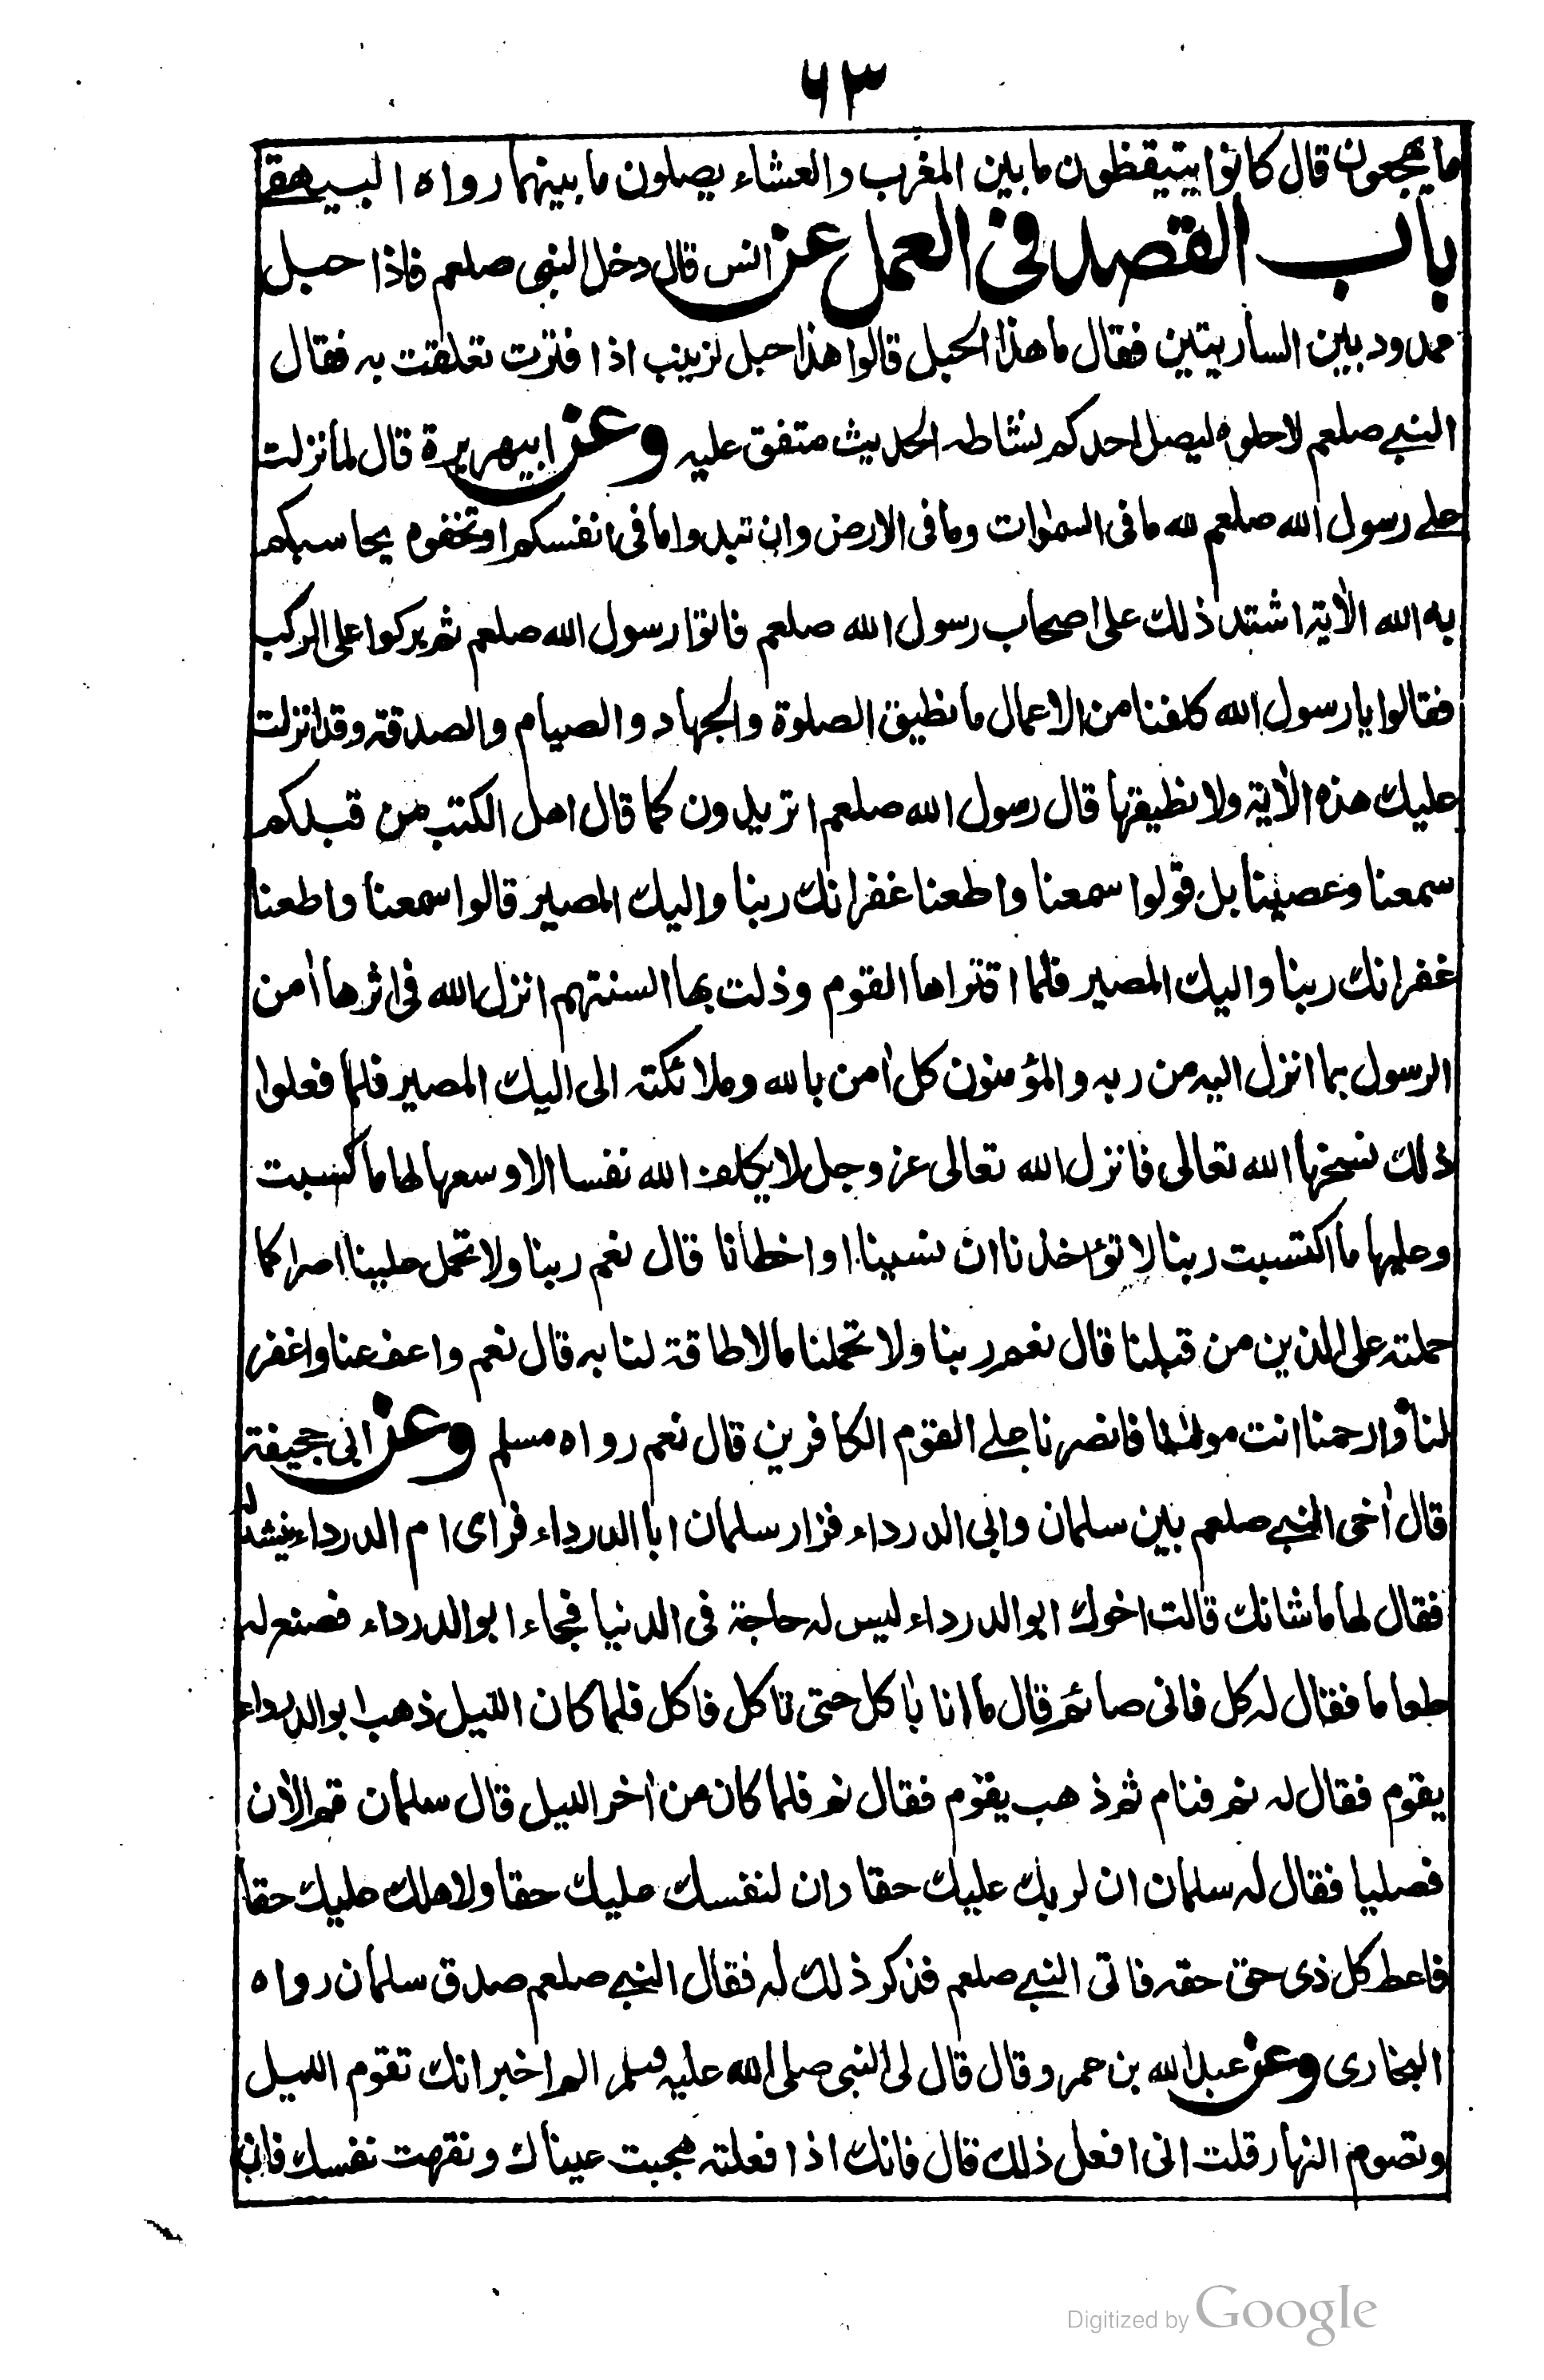 ٦٣
ما يهجعون قال كانوا يتيقظون ما بين المغرب والعشاء يصلون ما بينهما رواه البيهقى
باب القصد فى العمل عن انس قال دخل النبى صلعم فاذا حبل
ممدود بين الساريتين فقال ما هذا الحبل قالوا هذا حبل لزينب اذا فترت تعلقت به فقال
النبى صلعم لا حلوه ليصل احدكم نشاطه الحديث متفق عليه وعن ابيهريرة قال لما نزلت
على رسول الله صلعم لله ما فى السموٰت وما فى الارض وان تبدوا ما فى انفسكم اوتخفوه يحاسبكم
به الله الاٰية اشتد ذلك على اصحاب رسول الله صلعم فاتوا رسول الله صلعم ثم بركوا على الركب
فقالوا يا رسول الله كلفنا من الاعمال ما نطيق الصلوة والجهاد والصيام والصدقة وقد انزلت
عليك هذه الاٰية ولا نطيقها قال رسول الله صلعم اتريدون كما قال اهل الكتب من قبلكم
سمعنا وعصينا بل قولوا سمعنا واطعنا غفرانك ربنا واليك المصير قالوا سمعنا واطعنا
غفرانك ربنا واليك المصير فلما اقتراها القوم وذلت بها السنتهم انزل الله فى اثرها اٰمن
الرسول بما انزل اليه من ربه والمؤمنون كل اٰمن بالله وملائكته الى اليك المصير فلما فعلوا
ذلك نسخها الله تعالى فانزل الله تعالى عز وجل لا يكلف الله نفسا الا وسعها لها ما كسبت
وعليها ما اكتسبت ربنا لا تؤاخذنا ان نسينا او اخطانا قال نعم ربنا ولا تحمل علينا اصرا كما
حملته على الذين من قبلنا قال نعم ربنا ولا تحملنا مالا طاقة لنا به قال نعم واعف عنا واغفر
لنا وارحمنا انت مولٰنا فانصرنا على القوم الكافرين قال نعم رواه مسلم وعن ابى جحيفة
قال اٰخى النبى صلعم بين سلمان وابى الدرداء فزار سلمان ابا الدرداء فراى ام الدرداء
فقال لها ما شانك قالت اخوك ابو الدرداء ليس له حاجة فى الدنيا فجاء ابو الدرداء فصنع له
طعاما فقال له كل فانى صائم قال ما انا باٰكل حتى تاكل فاكل فلما كان الليل ذهب ابو الدرداء
يقوم فقال له نم فنام ثم ذهب يقوم فقال نم فلما كان من اٰخر الليل قال سلمان قم الاٰن
فصليا فقال له سلمان ان لربك عليك حقا وان لنفسك عليك حقا ولاهلك عليك حقا
فاعط كل ذى حق حقه فاتى النبى صلعم فذكر ذلك له فقال النبى صلعم صدق سلمان رواه
البخارى وعن عبد الله بن عمر وقال قال لى النبى صلى الله عليه وسلم الم اخبر انك تقوم الليل
وتصوم النهار قلت انى افعل ذلك قال فانك اذا فعلته هجبت عيناك ونقهت نفسك فان
Digitized by Google